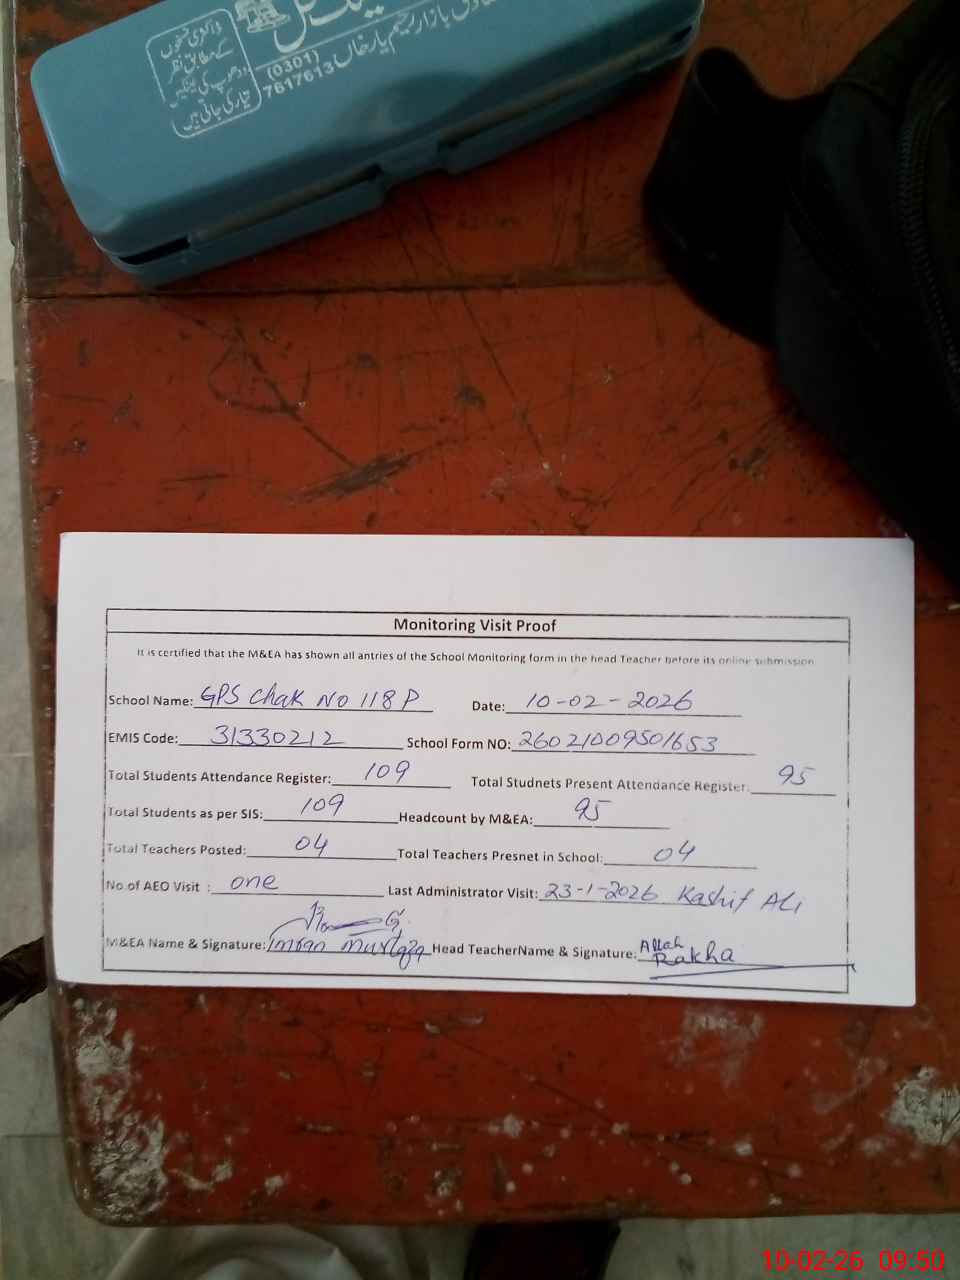 ڈاکٹری نسخوں
کے مطابق نظر
و دھوپ کی عینکیں
تیار کی جاتی ہیں
بازار رحیم یار خاں
(0301)
7617613
Monitoring Visit Proof
It is certified that the M&EA has shown all antries of the School Monitoring form in the head Teacher before its online submission
School Name: GPS Chak No 118 P Date: 10-02-2026
EMIS Code: 31330212 School Form NO: 26021009501653
Total Students Attendance Register: 109 Total Studnets Present Attendance Register: 95
Total Students as per SIS: 109 Headcount by M&EA: 95
Total Teachers Posted: 04 Total Teachers Presnet in School: 04
No of AEO Visit : one Last Administrator Visit: 23-1-2026 Kashif Ali
M&EA Name & Signature: Imran Mustafa Head TeacherName & Signature: Allah Rakha
10-02-26 09:50